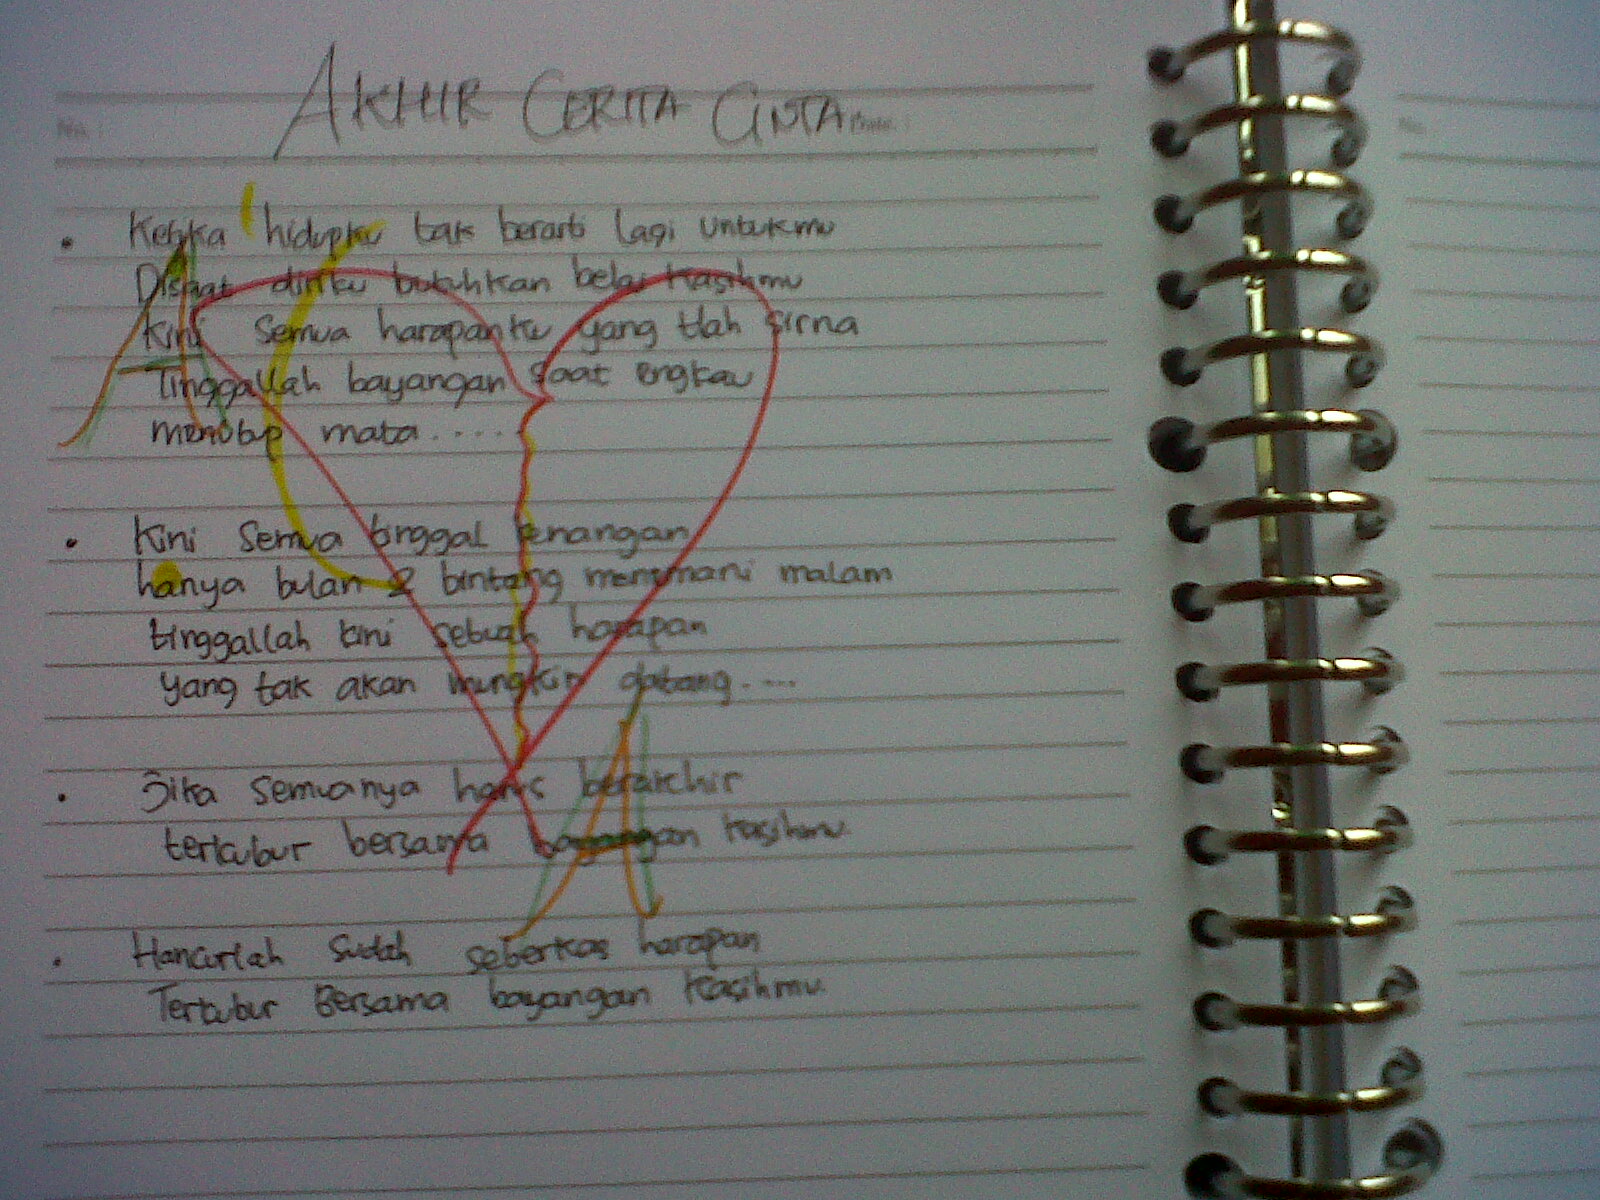 AKHIR CERITA CINTA
No. :
Date. :
• Ketika hidupku tak berarti lagi untukmu
Disaat diriku butuhkan belai kasihmu
Kini semua harapanku yang tlah sirna
Tinggallah bayangan saat engkau
menutup mata.....
• Kini semua tinggal kenangan
hanya bulan & bintang menemani malam
tinggallah kini sebuah harapan
yang tak akan mungkin datang....
• Jika semuanya harus berakhir
terkubur bersama bayangan kasihmu.
• Hancurlah sudah seberkas harapan
Terkubur Bersama bayangan kasihmu.
A
A
No.